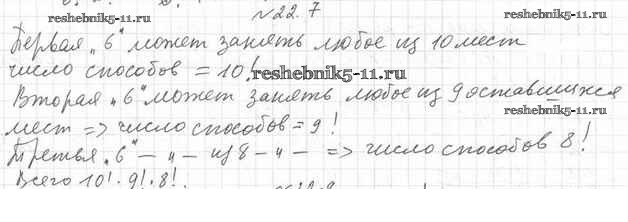 №22.7
reshebnik5-11.ru
reshebnik5-11.ru
Первая „6" может занять любое из 10 мест
число способов = 10!
reshebnik5-11.ru
Вторая „6" может занять любое из 9 оставшихся
мест => число способов = 9!
Третья „6" — 〃 — из 8 — 〃 — => число способов 8!
Всего 10! · 9! · 8!.
reshebnik5-11.ru
reshebnik5-11.ru